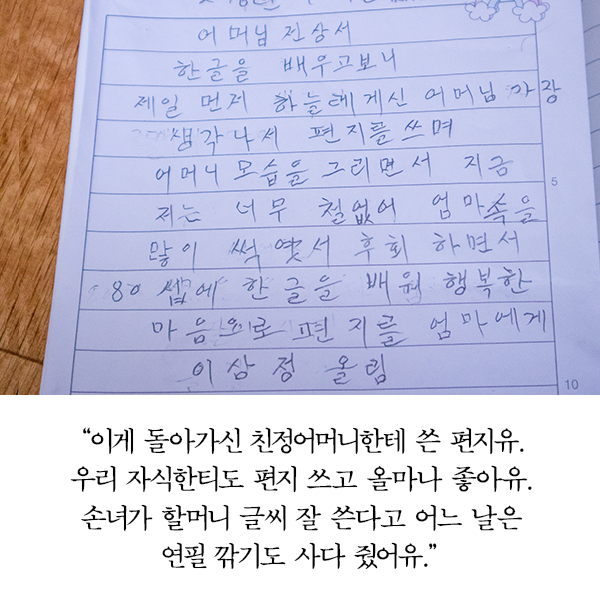 어머님 전상서
한글을 배우고보니
제일 먼저 하늘에게신 어머님 가장
생각나서 편지를 쓰며
어머니 모습을 그리면서 지금
저는 너무 철없어 엄마속을
많이 썩엿서 후회 하면서
80 쎕에 한글을 배워 행복한
마음의로 편지를 엄마에게
이삼정 올림
5
10
“이게 돌아가신 친정어머니한테 쓴 편지유.
우리 자식한티도 편지 쓰고 올마나 좋아유.
손녀가 할머니 글씨 잘 쓴다고 어느 날은
연필 깎기도 사다 줬어유.”